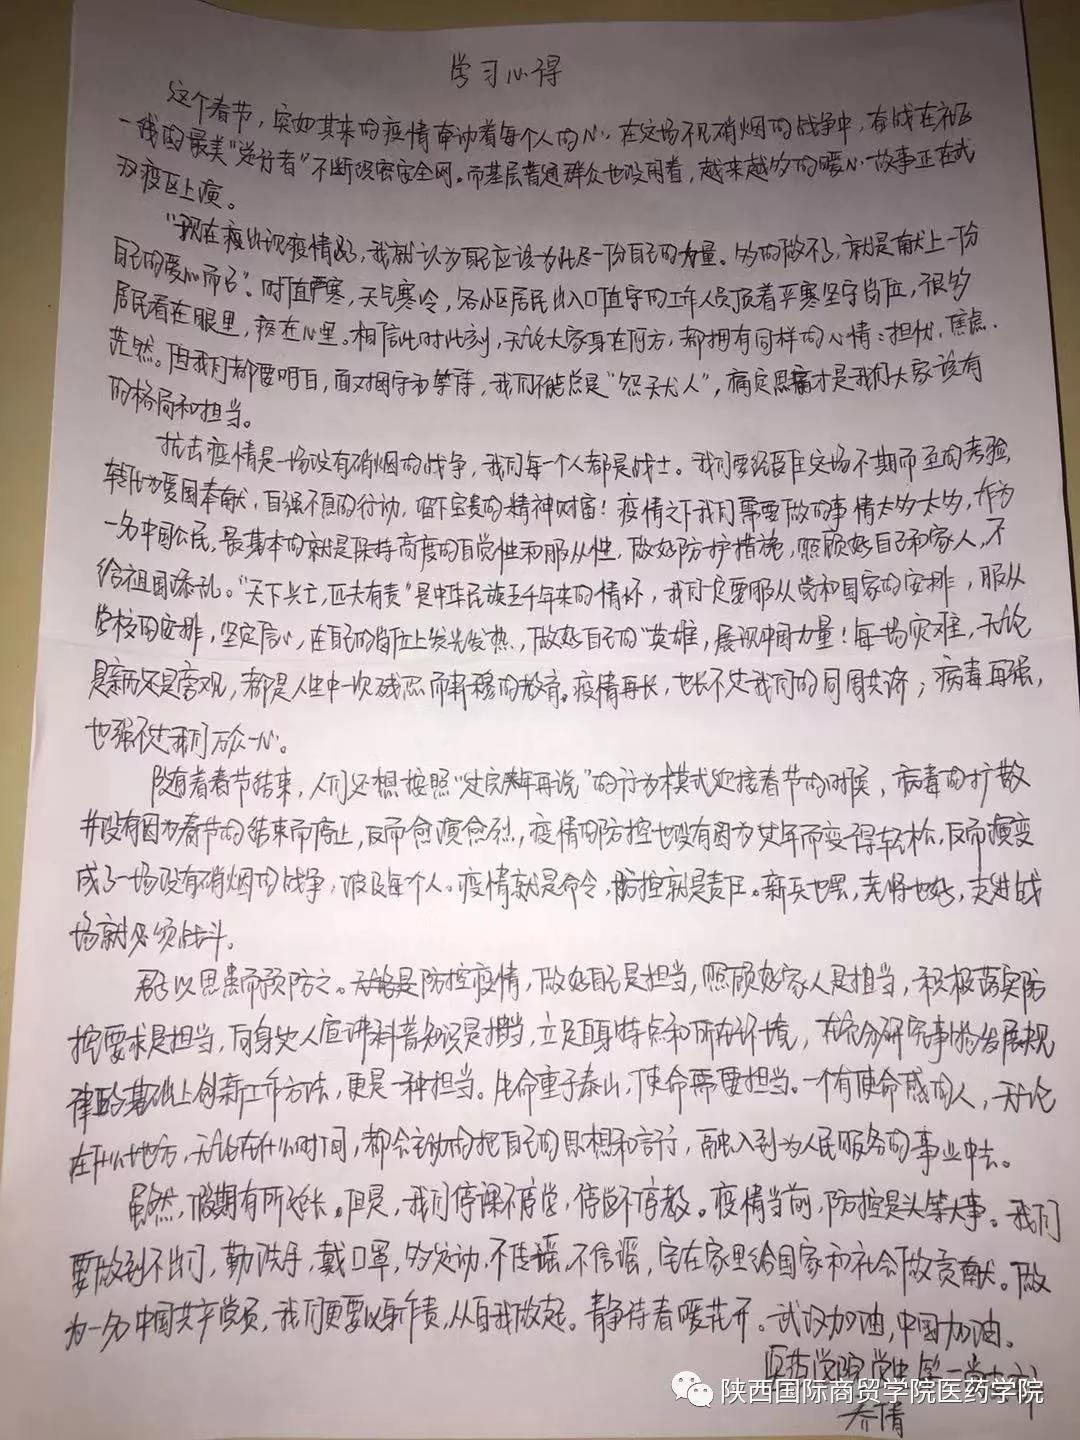 学习心得
这个春节，突如其来的疫情牵动着每个人的心。在这场不见硝烟的战争中，奋战在
一线的最美“逆行者”不断织密安全网。而基层普通群众也没闲着，越来越多的暖心故事正在武
汉疫区上演。
“现在疫情，我就认为自己应该为此尽一份自己的力量。多的做不了，就是献上一份
自己的爱心而已”。时值严寒，天气寒冷，各小区居民出入口值守的工作人员顶着严寒坚守岗位，很多
居民看在眼里，疼在心里。相信此时此刻，无论大家身在何方，都拥有同样的心情：担忧、焦虑、
茫然。但我们都要明白，面对困守和等待，我们不能总是“怨天尤人”，痛定思痛才是我们大家该有
的格局和担当。
抗击疫情是一场没有硝烟的战争，我们每一个人都是战士。我们要经受住这场不期而至的考验，
转化为爱国奉献、自强不息的行动，留下宝贵的精神财富！疫情之下我们需要做的事情太多太多，作为
一名中国公民，最基本的就是保持高度的自觉性和服从性，做好防护措施，照顾好自己和家人，不
给祖国添乱。“天下兴亡，匹夫有责”是中华民族五千年来的情怀，我们一定要服从党和国家的安排，服从
学校的安排，坚定信心，在自己的岗位上发光发热，做好自己的“英雄，展现中国力量！每一场灾难，无论
是亲历还是旁观，都是人生中一次残忍而肃穆的教育。疫情再长，也长不过我们的同周共济；病毒再强，
也强不过我们万众一心。
随着春节结束，人们还想按照“过完年再说”的行为模式迎接春节的时候，病毒的扩散
并没有因为春节的结束而停止，反而愈演愈烈，疫情的防控也没有因为过年而变得轻松，反而演变
成了一场没有硝烟的战争，波及每个人。疫情就是命令，防控就是责任。新兵也罢，老将也好，走进战
场就必须战斗。
君子以思患而预防之。无论是防控疫情，做好自己是担当，照顾好家人是担当，积极落实防
控要求是担当，向身边人宣讲科普知识是担当，立足自身特点和所在环境，在充分研究事物发展规
律的基础上创新工作方法，更是一种担当。生命重于泰山，使命需要担当。一个有使命感的人，无论
在什么地方，无论在什么时间，都会主动的把自己的思想和言行，融入到为人民服务的事业中去。
虽然，假期有所延长。但是，我们停课不停学，停学不停教。疫情当前，防控是头等大事。我们
要做到不出门，勤洗手，戴口罩，多运动，不传谣，不信谣，宅在家里给国家和社会做贡献。做
为一名中国共产党员，我们更要以身作责，从自我做起。静待春暖花开。武汉加油，中国加油。
医药学院
乔倩
陕西国际商贸学院医药学院